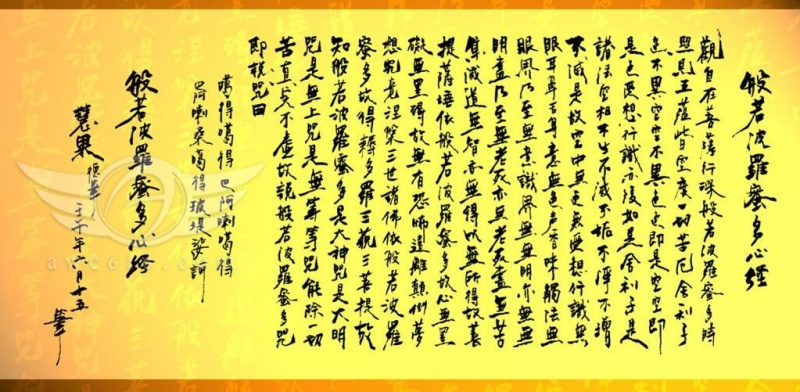 般若波羅蜜多心經
觀自在菩薩行深般若波羅蜜多時
照見五蘊皆空度一切苦厄舍利子
色不異空空不異色色即是空空即
是色受想行識亦復如是舍利子是
諸法空相不生不滅不垢不淨不增
不滅是故空中無色無受想行識無
眼耳鼻舌身意無色声香味觸法無
眼界乃至無意識界無無明亦無無
明盡乃至無老死亦無老死盡無苦
集滅道無智亦無得以無所得故菩
提薩埵依般若波羅蜜多故心無罣
礙無罣碍故無有恐怖遠離顛倒夢
想究竟涅槃三世諸佛依般若波羅
蜜多故得耨多羅三藐三菩提故
知般若波羅蜜多是大神咒是大明
咒是無上咒是無等等咒能除一切
苦真實不虛故說般若波羅蜜多咒
即說咒曰
噶得噶得 巴阿喇噶得
巴阿喇桑噶得 玻堤娑訶
般若波羅蜜多心經
慧果
年六月十五
華